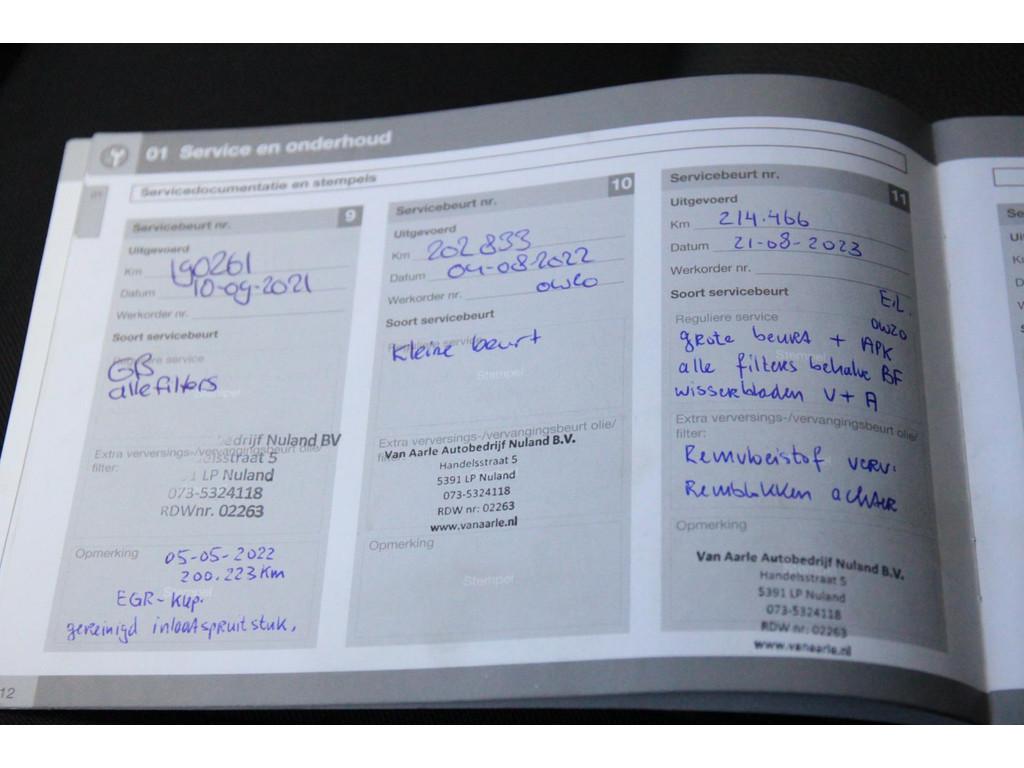 01 Service en onderhoud
01
Servicedocumentatie en stempels
Servicebeurt nr. 9
Uitgevoerd
Km 190261
Datum 10-09-2021
Werkorder nr.
Soort servicebeurt
Reguliere service
GB
alle filters
Stempel
Extra verversings-/vervangingsbeurt olie/
filter:
edrijf Nuland BV
lsstraat 5
1 LP Nuland
073-5324118
RDWnr. 02263
Opmerking
05-05-2022
200.223 Km
EGR-Klep.
gereinigd inlaatspruitstuk.
Servicebeurt nr. 10
Uitgevoerd
Km 202833
Datum 04-08-2022
Werkorder nr. 0W20
Soort servicebeurt
Reguliere service
Kleine beurt
Stempel
Extra verversings-/vervangingsbeurt olie/
filter:
Van Aarle Autobedrijf Nuland B.V.
Handelsstraat 5
5391 LP Nuland
073-5324118
RDW nr: 02263
www.vanaarle.nl
Opmerking
Stempel
Servicebeurt nr. 11
Uitgevoerd
Km 214.466
Datum 21-08-2023
Werkorder nr.
Soort servicebeurt E.L.
Reguliere service 0W20
grote beurt + APK
Stempel
alle filters behalve BF
wisserbladen V+A
Extra verversings-/vervangingsbeurt olie/
filter:
Remvloeistof verv.
Remblokken achter
Opmerking
Van Aarle Autobedrijf Nuland B.V.
Handelsstraat 5
5391 LP Nuland
073-5324118
RDW nr: 02263
www.vanaarle.nl
12